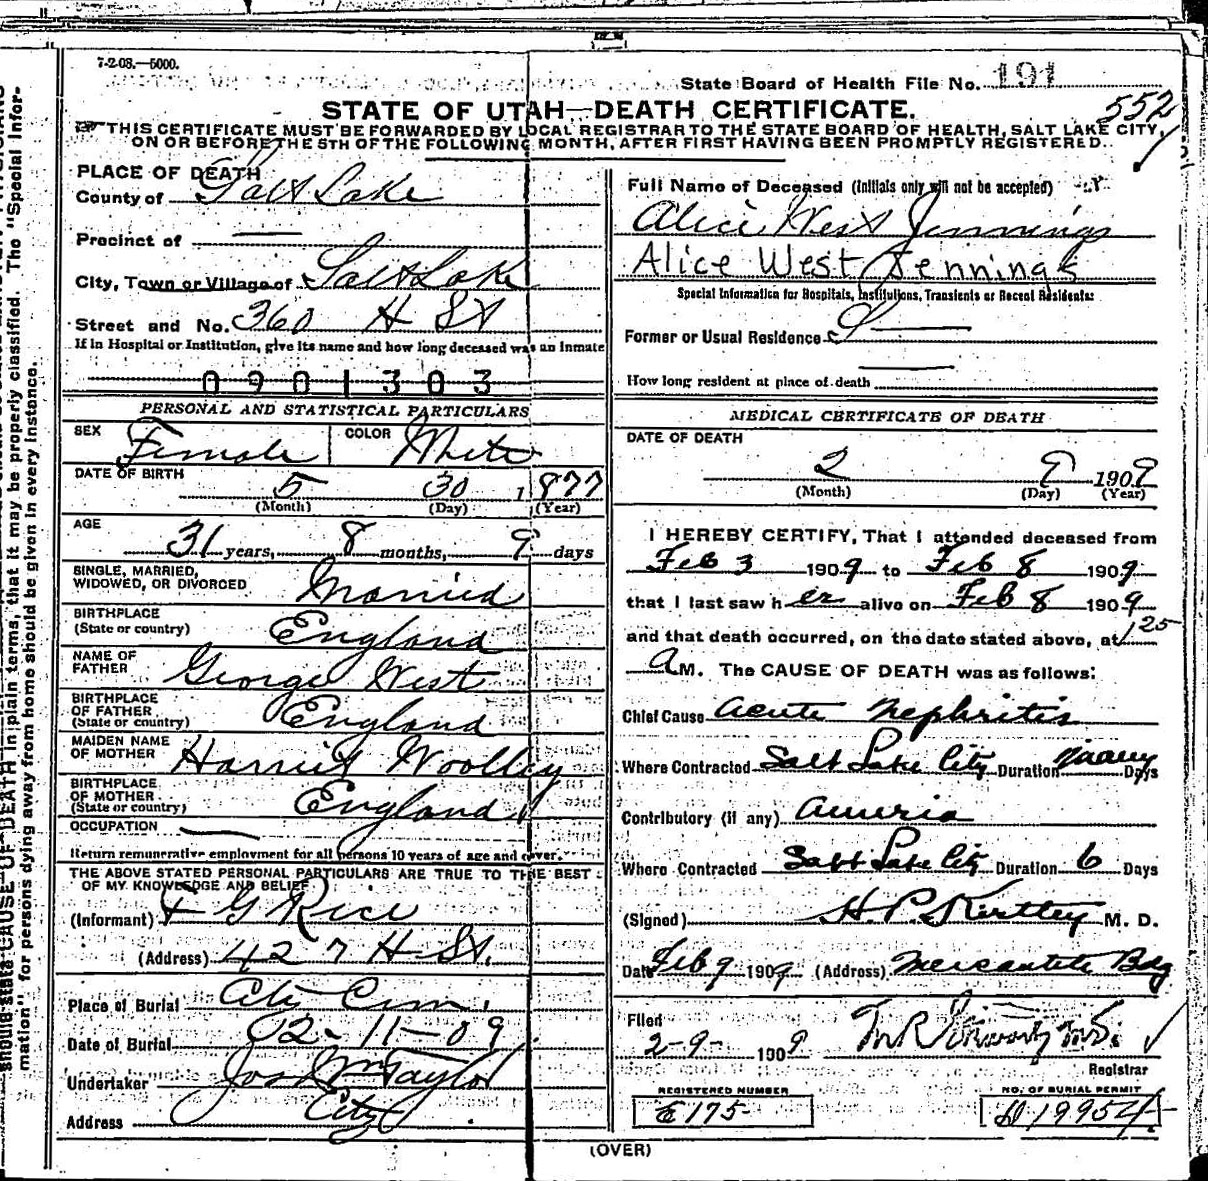 7-2-08.—5000.
State Board of Health File No. 191
552
STATE OF UTAH—DEATH CERTIFICATE.
THIS CERTIFICATE MUST BE FORWARDED BY LOCAL REGISTRAR TO THE STATE BOARD OF HEALTH, SALT LAKE CITY,
ON OR BEFORE THE 5TH OF THE FOLLOWING MONTH, AFTER FIRST HAVING BEEN PROMPTLY REGISTERED.
PLACE OF DEATH
County of Salt Lake
Precinct of —
City, Town or Village of Salt Lake
Street and No. 360 H St
If in Hospital or Institution, give its name and how long deceased was an inmate
0901303
PERSONAL AND STATISTICAL PARTICULARS
SEX Female COLOR White
DATE OF BIRTH 5 30 1877
(Month) (Day) (Year)
AGE
31 years, 8 months, 9 days
SINGLE, MARRIED,
WIDOWED, OR DIVORCED Married
BIRTHPLACE
(State or country) England
NAME OF
FATHER George West
BIRTHPLACE
OF FATHER
(State or country) England
MAIDEN NAME
OF MOTHER Harriet Woolley
BIRTHPLACE
OF MOTHER
(State or country) England
OCCUPATION —
Return remunerative employment for all persons 10 years of age and over.
THE ABOVE STATED PERSONAL PARTICULARS ARE TRUE TO THE BEST
OF MY KNOWLEDGE AND BELIEF
(Informant) G Rice
(Address) 427 H St.
Place of Burial City Cem.
Date of Burial 02-11-09
Undertaker Jos Wm Taylor
Address City
Full Name of Deceased (Initials only will not be accepted)
Alice West Jennings
Alice West Jennings
Special Information for Hospitals, Institutions, Transients or Recent Residents:
Former or Usual Residence
How long resident at place of death
MEDICAL CERTIFICATE OF DEATH
DATE OF DEATH
2 9 1909
(Month) (Day) (Year)
I HEREBY CERTIFY, That I attended deceased from
Feb 3 1909 to Feb 8 1909
that I last saw her alive on Feb 8 1909
and that death occurred, on the date stated above, at 1 25
A M. The CAUSE OF DEATH was as follows:
Chief Cause Acute Nephritis
Where Contracted Salt Lake City Duration many Days
Contributory (if any)
Where Contracted Salt Lake City Duration 6 Days
(Signed) H. P. Kirtley M. D.
Date Feb 9 1909 (Address) Mercantile Bdg
Filed
2-9- 1909
Registrar
REGISTERED NUMBER
E 175
NO. OF BURIAL PERMIT
D 19954
(OVER)
should state CAUSE OF DEATH in plain terms, that it may be properly classified. The "Special Infor-
mation" for persons dying away from home should be given in every instance.